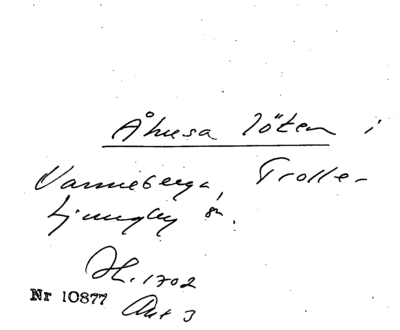 Åhusa löten i
Vanneberga, Trolle-
Ljungby sn.
H. 1702
Nr 10877
Akt 3